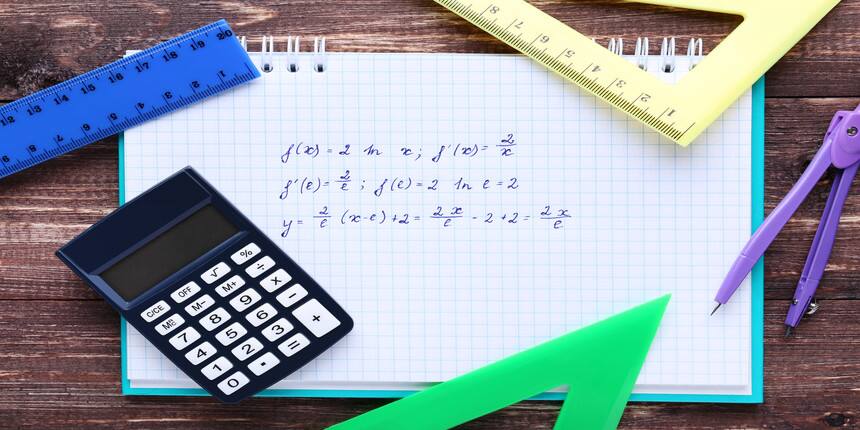 f(x) = 2 ln x; f'(x) = 2/x
f'(e) = 2/e; f(e) = 2 ln e = 2
y = 2/e (x-e) + 2 = 2x/e - 2 + 2 = 2x/e
12 13 14 15 16 17 18 19 20
6 5 4 3 2 1
8 7 6 5 4 3 2 1
C/CE OFF √ %
M+ ÷
M− 9 ×
7 8 6 −
4 5 3 +
1 2 · =
0